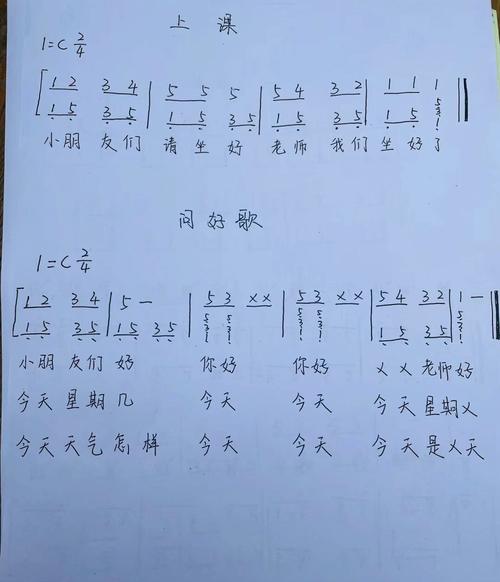 上 课
1=C 2/4
1 2 3 4 | 5 5 5 | 5 4 3 2 | 1 1 1 ‖
1 5 3 5 | 1 5 3 5 | 1 5 3 5 | 1 5 5 3 1
小朋 友们 请 坐 好 老师 我们 坐 好 了
问 好 歌
1=C 2/4
1 2 3 4 | 5 — | 5 3 X X | 5 3 X X | 5 4 3 2 | 1 — ‖
1 5 3 5 | 1 5 3 5 | 5 3 1 5 3 1 | 5 3 1 5 3 1 | 1 5 3 5 | 5 3 1
小朋 友们 好 你好 你好 X X 老师 好
今天 星期 几 今天 今天 今天 星期X
今天 天气 怎样 今天 今天 今天 是X天